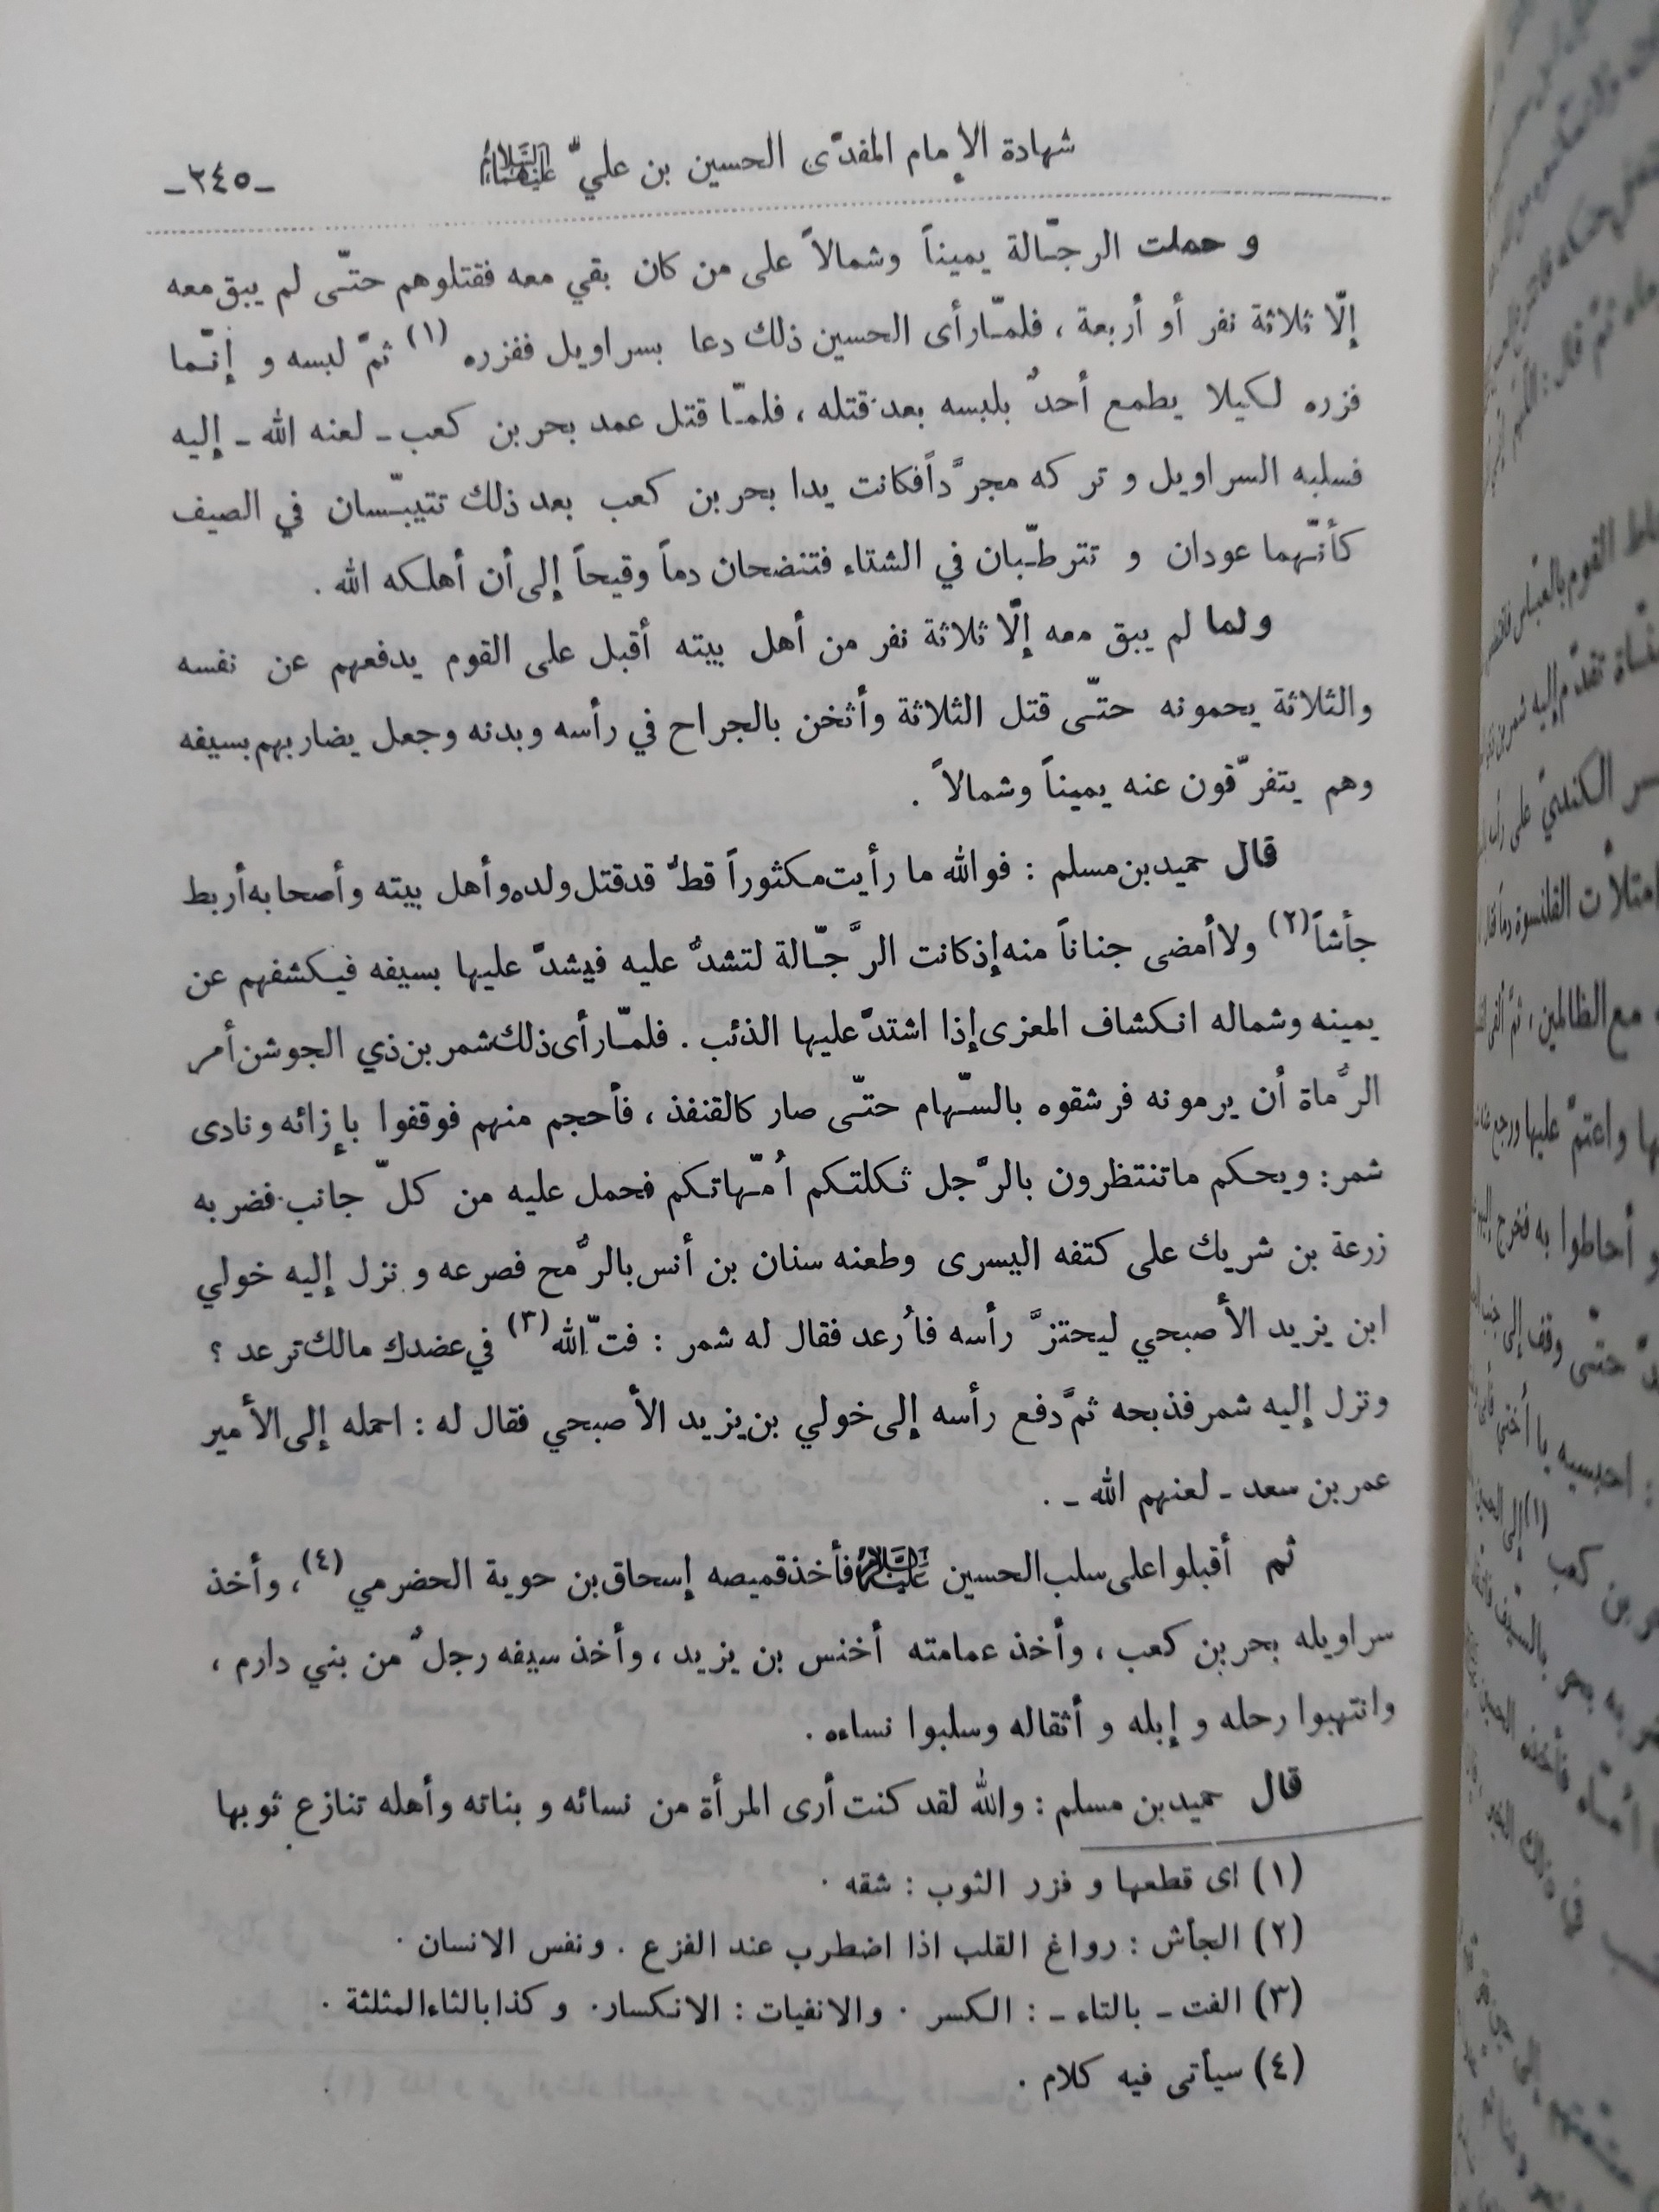 شهادة الإمام المفدّى الحسين بن عليّ عليهما السلام
-٢٤٥-
و حملت الرجّالة يميناً وشمالاً على من كان بقي معه فقتلوهم حتّى لم يبق معه
إلّا ثلاثة نفر أو أربعة ، فلمّا رأى الحسين ذلك دعا بسراويل ففزره (١) ثمّ لبسه و إنّما
فزره لكيلا يطمع أحدٌ بلبسه بعد قتله ، فلمّا قتل عمد بحر بن كعب ـ لعنه الله ـ إليه
فسلبه السراويل و تركه مجرَّداً فكانت يدا بحر بن كعب بعد ذلك تتيبّسان في الصيف
كأنّهما عودان و تترطّبان في الشتاء فتنضحان دماً وقيحاً إلى أن أهلكه الله .
ولما لم يبق معه إلّا ثلاثة نفر من أهل بيته أقبل على القوم يدفعهم عن نفسه
والثلاثة يحمونه حتّى قتل الثلاثة وأثخن بالجراح في رأسه وبدنه وجعل يضاربهم بسيفه
وهم يتفرّقون عنه يميناً وشمالاً .
قال حميد بن مسلم : فوالله ما رأيت مكثوراً قطّ قد قتل ولده وأهل بيته وأصحابه أربط
جأشاً (٢) ولا أمضى جناناً منه إذ كانت الرَّجّالة لتشدُّ عليه فيشدّ عليها بسيفه فيكشفهم عن
يمينه وشماله انكشاف المعزى إذا اشتدّ عليها الذئب . فلمّا رأى ذلك شمر بن ذي الجوشن أمر
الرُّماة أن يرمونه فرشقوه بالسّهام حتّى صار كالقنفذ ، فأحجم منهم فوقفوا بإزائه ونادى
شمر : ويحكم ما تنتظرون بالرَّجل ثكلتكم اُمّهاتكم فحمل عليه من كلّ جانب فضربه
زرعة بن شريك على كتفه اليسرى وطعنه سنان بن أنس بالرُّمح فصرعه و نزل إليه خولي
ابن يزيد الأصبحي ليحتزَّ رأسه فاُرعد فقال له شمر : فتّ الله (٣) في عضدك مالك ترعد ؟
ونزل إليه شمر فذبحه ثمَّ دفع رأسه إلى خولي بن يزيد الأصبحي فقال له : احمله إلى الأمير
عمر بن سعد ـ لعنهم الله ـ .
ثم أقبلوا على سلب الحسين عليه السلام فأخذ قميصه إسحاق بن حوية الحضرمي (٤)، وأخذ
سراويله بحر بن كعب ، وأخذ عمامته أخنس بن يزيد ، وأخذ سيفه رجلٌ من بني دارم ،
وانتهبوا رحله و إبله و أثقاله وسلبوا نساءه .
قال حميد بن مسلم : والله لقد كنت أرى المرأة من نسائه و بناته وأهله تنازع ثوبها
(١) اى قطعها و فزر الثوب : شقه .
(٢) الجأش : رواغ القلب اذا اضطرب عند الفزع . ونفس الانسان .
(٣) الفت ـ بالتاء ـ : الكسر . والانفيات : الانكسار . و كذا بالثاء المثلثة .
(٤) سيأتى فيه كلام .